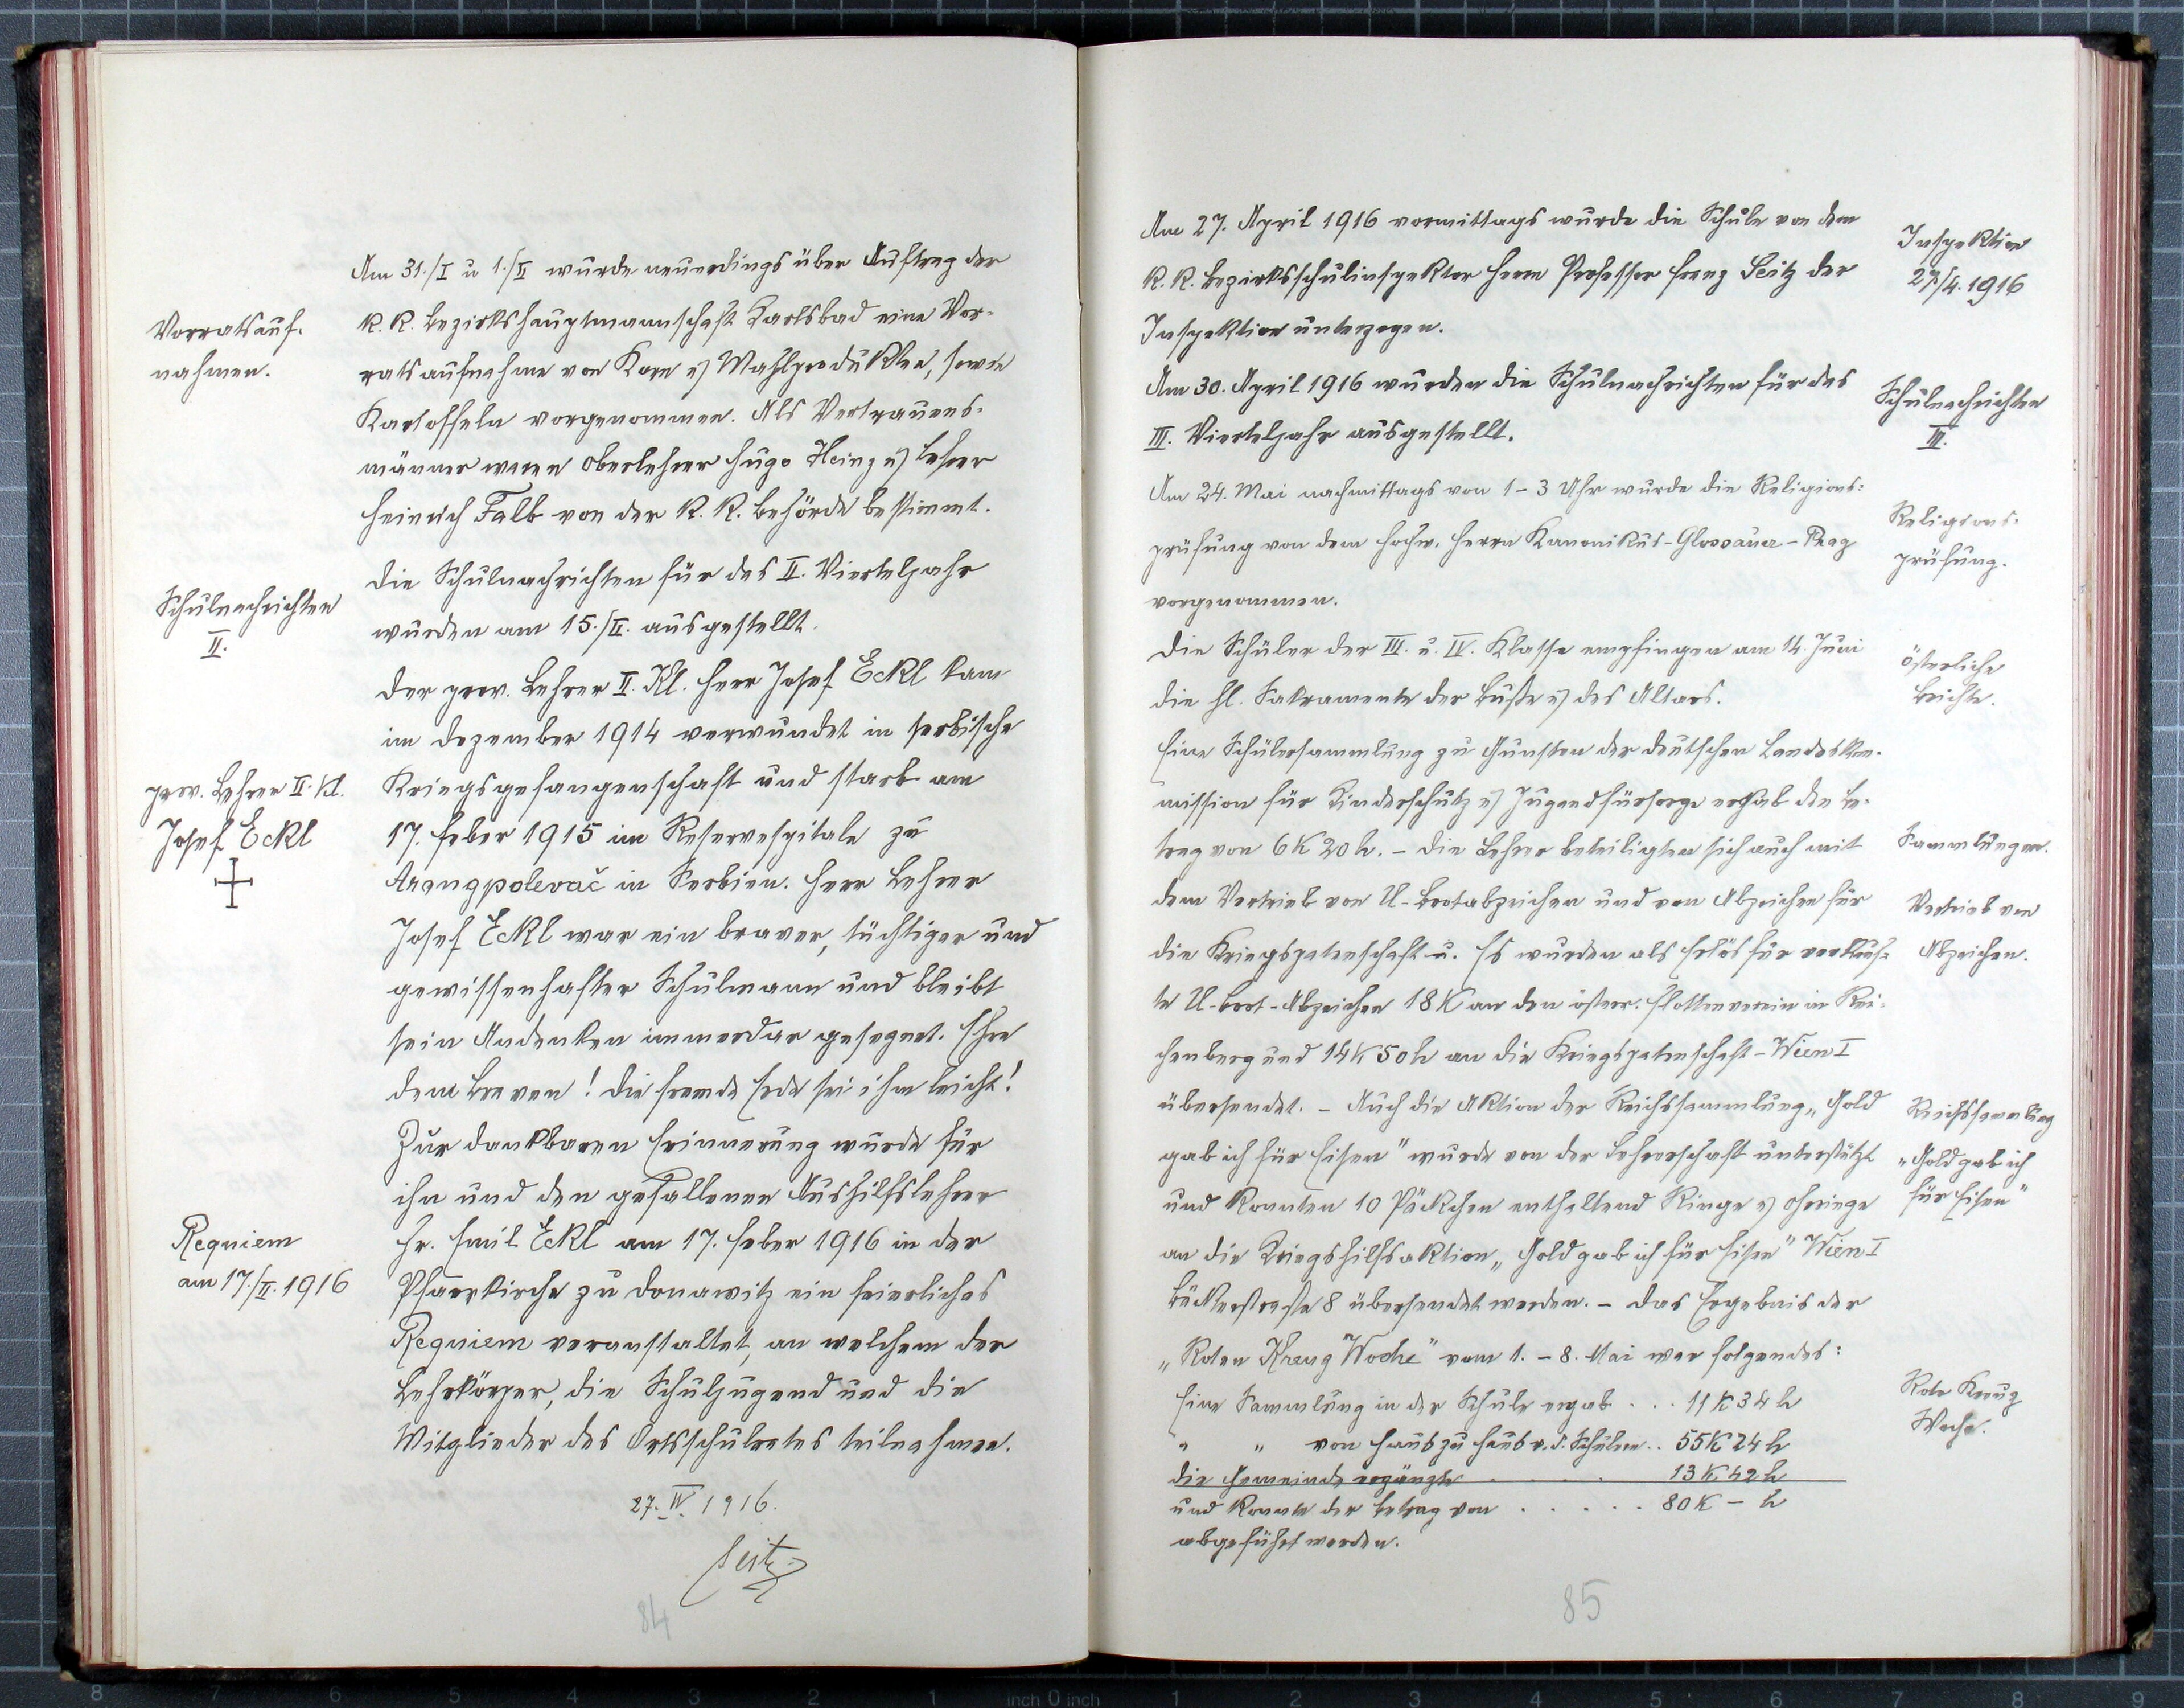 Am 31./I u 1./II wurde neuerdings über Auftrag der
Vorratsauf-
nahmen.
K. K. Bezirkshauptmannschaft Karlsbad eine Vor-
ratsaufnahme von Korn u) Mahlprodukten, sowie
Kartoffeln vorgenommen. Als Vertrauens-
männer waren Oberlehrer Hugo Heinz u) Lehrer
Heinrich Falb von der K. K. Behörde bestimmt.
Schulnachrichten
II.
Die Schulnachrichten für das II. Vierteljahr
wurden am 15./II. ausgestellt.
prov. Lehrer II. Kl.
Josef Eckl
Der prov. Lehrer II. Kl. Herr Josef Eckl kam
im Dezember 1914 verwundet in serbische
Kriegsgefangenschaft und starb am
17. Feber 1915 im Reservespitale zu
Arangpolevač in Serbien. Herr Lehrer
Josef Eckl war ein braver, tüchtiger und
gewissenhafter Schulmann und bleibt
sein Andenken immerdar gesegnet. Ehre
dem Braven! Die fremde Erde sei ihm leicht!
Requiem
am 17./II. 1916
Zur dankbaren Erinnerung wurde für
ihn und den gefallenen Aushilfslehrer
Hr. Emil Eckl am 17. Feber 1916 in der
Pfarrkirche zu Donawitz ein feierliches
Requiem veranstaltet, an welchem der
Lehrkörper, die Schuljugend und die
Mitglieder des Ortsschulrates teilnahmen.
27. IV. 1916.
Seitz
84
Am 27. April 1916 vormittags wurde die Schule von dem
K. K. Bezirksschulinspektor Herrn Professor Franz Seitz der
Inspektion unterzogen.
Inspektion
27/4. 1916
Am 30. April 1916 wurden die Schulnachrichten für das
III. Vierteljahr ausgestellt.
Schulnachrichten
III.
Am 24. Mai nachmittags von 1-3 Uhr wurde die Religions:
prüfung von dem hochw. Herrn Kanonikus-Glossauer-Prag
vorgenommen.
Religions-
prüfung.
Die Schüler der III. u. IV. Klasse empfingen am 14. Juni
die hl. Sakramente der Buße u) des Altars.
österliche
Beichte.
Eine Schülersammlung zu Gunsten der deutschen Landeskom-
mission für Kinderschutz u) Jugendfürsorge erhab den Be-
trag von 6K 20h. – Die Lehrer beteiligten sich auch mit
Sammlungen.
dem Vertrieb von U-Bootabzeichen und von Abzeichen für
die Kriegspatenschaft u. Es wurden als Erlös für verkauf-
te U-Boot-Abzeichen 18K an den österr. Flottenverein in Rei-
chenberg und 14K 50h an die Kriegspatenschaft-Wien I
Vertrieb von
Abzeichen.
übersendet. – Auch die Aktion der Reichssammlung „Gold
gab ich für Eisen" wurde von der Lehrerschaft unterstützt
und konnten 10 Päckchen enthaltend Ringe u) Ohrringe
an die Kriegshilfsaktion „Gold gab ich für Eisen" Wien I
Bäckerstraße 8 übersendet werden. – Das Ergebnis der
Reichssammlung
„Gold gab ich
für Eisen"
„Roten Kreuz Woche" vom 1. – 8. Mai war folgendes:
Eine Sammlung in der Schule ergab . . . 11K 34h
„ „ von Haus zu Haus v. d. Schülern . . 55K 24h
die Gemeinde ergänzte . . 13K 42h
und konnte der Betrag von . . . . . 80K – h
abgeführt werden.
Rote Kreuz
Woche.
85